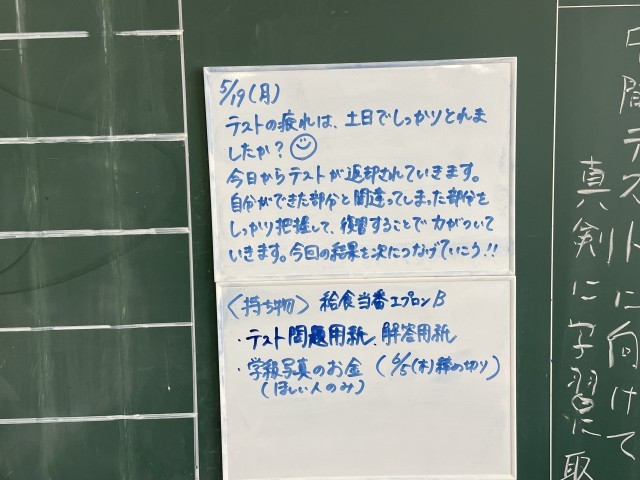 5/19(月)
テストの疲れは、土日でしっかりとれま
したか？
今日からテストが返却されていきます。
自分ができた部分と間違ってしまった部分を
しっかり把握して、復習することで力がついて
いきます。今回の結果を次につなげていこう!!
〈持ち物〉 給食当番エプロンB
・テスト問題用紙、解答用紙
・学級写真のお金 (6/5(木)締め切り)
(ほしい人のみ)
中間テストに向けて
真剣に学習に取